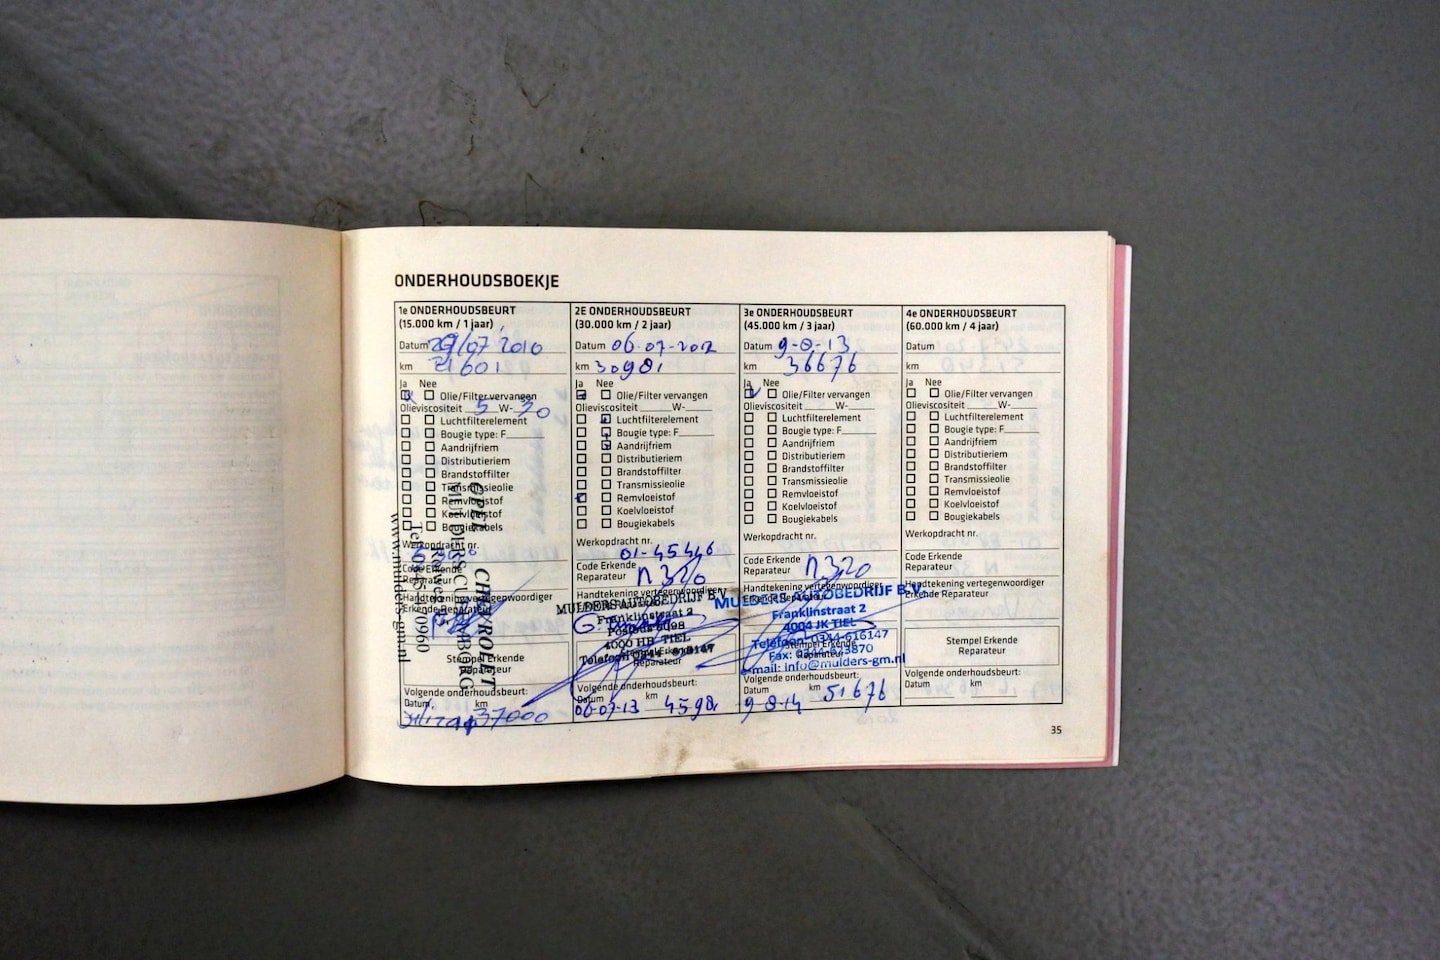 ONDERHOUDSBOEKJE
1e ONDERHOUDSBEURT
(15.000 km / 1 jaar)
Datum 29/07/2010
km 21601
Ja Nee
Olie/Filter vervangen
Olieviscositeit 5 W- 30
Luchtfilterelement
Bougie type: F
Aandrijfriem
Distributieriem
Brandstoffilter
Transmissieolie
Remvloeistof
Koelvloeistof
Bougiekabels
Werkopdracht nr.
Code Erkende
Reparateur
Handtekening vertegenwoordiger
Erkende Reparateur
Stempel Erkende
Reparateur
OPEL CHEVROLET
Volgende onderhoudsbeurt:
Datum km
37000
2E ONDERHOUDSBEURT
(30.000 km / 2 jaar)
Datum 06-07-2012
km 30981
Ja Nee
Olie/Filter vervangen
Olieviscositeit W-
Luchtfilterelement
Bougie type: F
Aandrijfriem
Distributieriem
Brandstoffilter
Transmissieolie
Remvloeistof
Koelvloeistof
Bougiekabels
Werkopdracht nr.
01-45446
Code Erkende
Reparateur n320
Handtekening vertegenwoordiger
MULDERS AUTOBEDRIJF B.V.
Franklinstraat 2
Postbus 6098
4000 HB TIEL
Telefoon 0344-616147
Stempel Erkende
Reparateur
Volgende onderhoudsbeurt:
Datum km
06-07-13 45981
3e ONDERHOUDSBEURT
(45.000 km / 3 jaar)
Datum 9-8-13
km 36676
Ja Nee
Olie/Filter vervangen
Olieviscositeit W-
Luchtfilterelement
Bougie type: F
Aandrijfriem
Distributieriem
Brandstoffilter
Transmissieolie
Remvloeistof
Koelvloeistof
Bougiekabels
Werkopdracht nr.
Code Erkende
Reparateur n320
Handtekening vertegenwoordiger
Erkende Reparateur
MULDERS AUTOBEDRIJF B.V.
Franklinstraat 2
4004 JK TIEL
Telefoon: 0344-616147
Fax: 0344-613870
email: info@mulders-gm.nl
Stempel Erkende
Reparateur
Volgende onderhoudsbeurt:
Datum km
9-8-14 51676
4e ONDERHOUDSBEURT
(60.000 km / 4 jaar)
Datum
km
Ja Nee
Olie/Filter vervangen
Olieviscositeit W-
Luchtfilterelement
Bougie type: F
Aandrijfriem
Distributieriem
Brandstoffilter
Transmissieolie
Remvloeistof
Koelvloeistof
Bougiekabels
Werkopdracht nr.
Code Erkende
Reparateur
Handtekening vertegenwoordiger
Erkende Reparateur
Stempel Erkende
Reparateur
Volgende onderhoudsbeurt:
Datum km
35